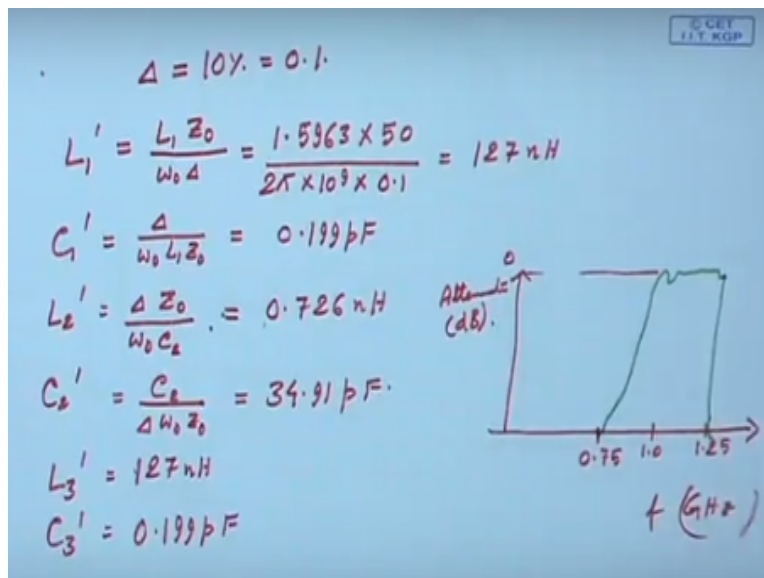 © CET
I.I.T. KGP
Δ = 10% = 0.1.
L₁' = L₁ Z₀ / ω₀ Δ = 1.5963 × 50 / 2π × 10⁹ × 0.1 = 127 nH
C₁' = Δ / ω₀ L₁ Z₀ = 0.199 pF
L₂' = Δ Z₀ / ω₀ C₂ = 0.726 nH
C₂' = C₂ / Δ ω₀ Z₀ = 34.91 pF.
L₃' = 127 nH
C₃' = 0.199 pF
0
(dB).
0.75 1.0 1.25
f (GHz)